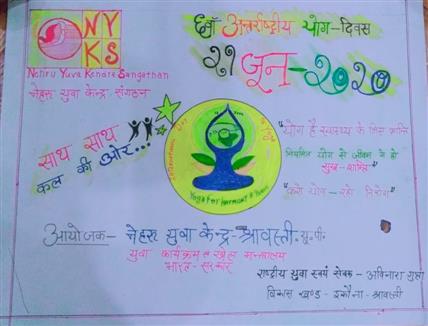 NYKS
Nehru Yuva Kendra Sangathan
नेहरू युवा केन्द्र संगठन
6वाँ अन्तर्राष्ट्रीय योग-दिवस
21 जून-2020
साथ साथ
कल की ओर...
International Day of Yoga
Yoga for Harmony & Peace
"योग है स्वास्थ्य के लिए क्रांति
नियमित योग से जीवन में हो
सुख-शान्ति"
"करो योग-रहो निरोग"
आयोजक- नेहरू युवा केन्द्र-श्रावस्ती. यू.पी.
युवा कार्यक्रम व खेल मन्त्रालय
भारत-सरकार
राष्ट्रीय युवा स्वयं सेवक- अविनाश गुप्ता
विकास खण्ड- इकौना-श्रावस्ती